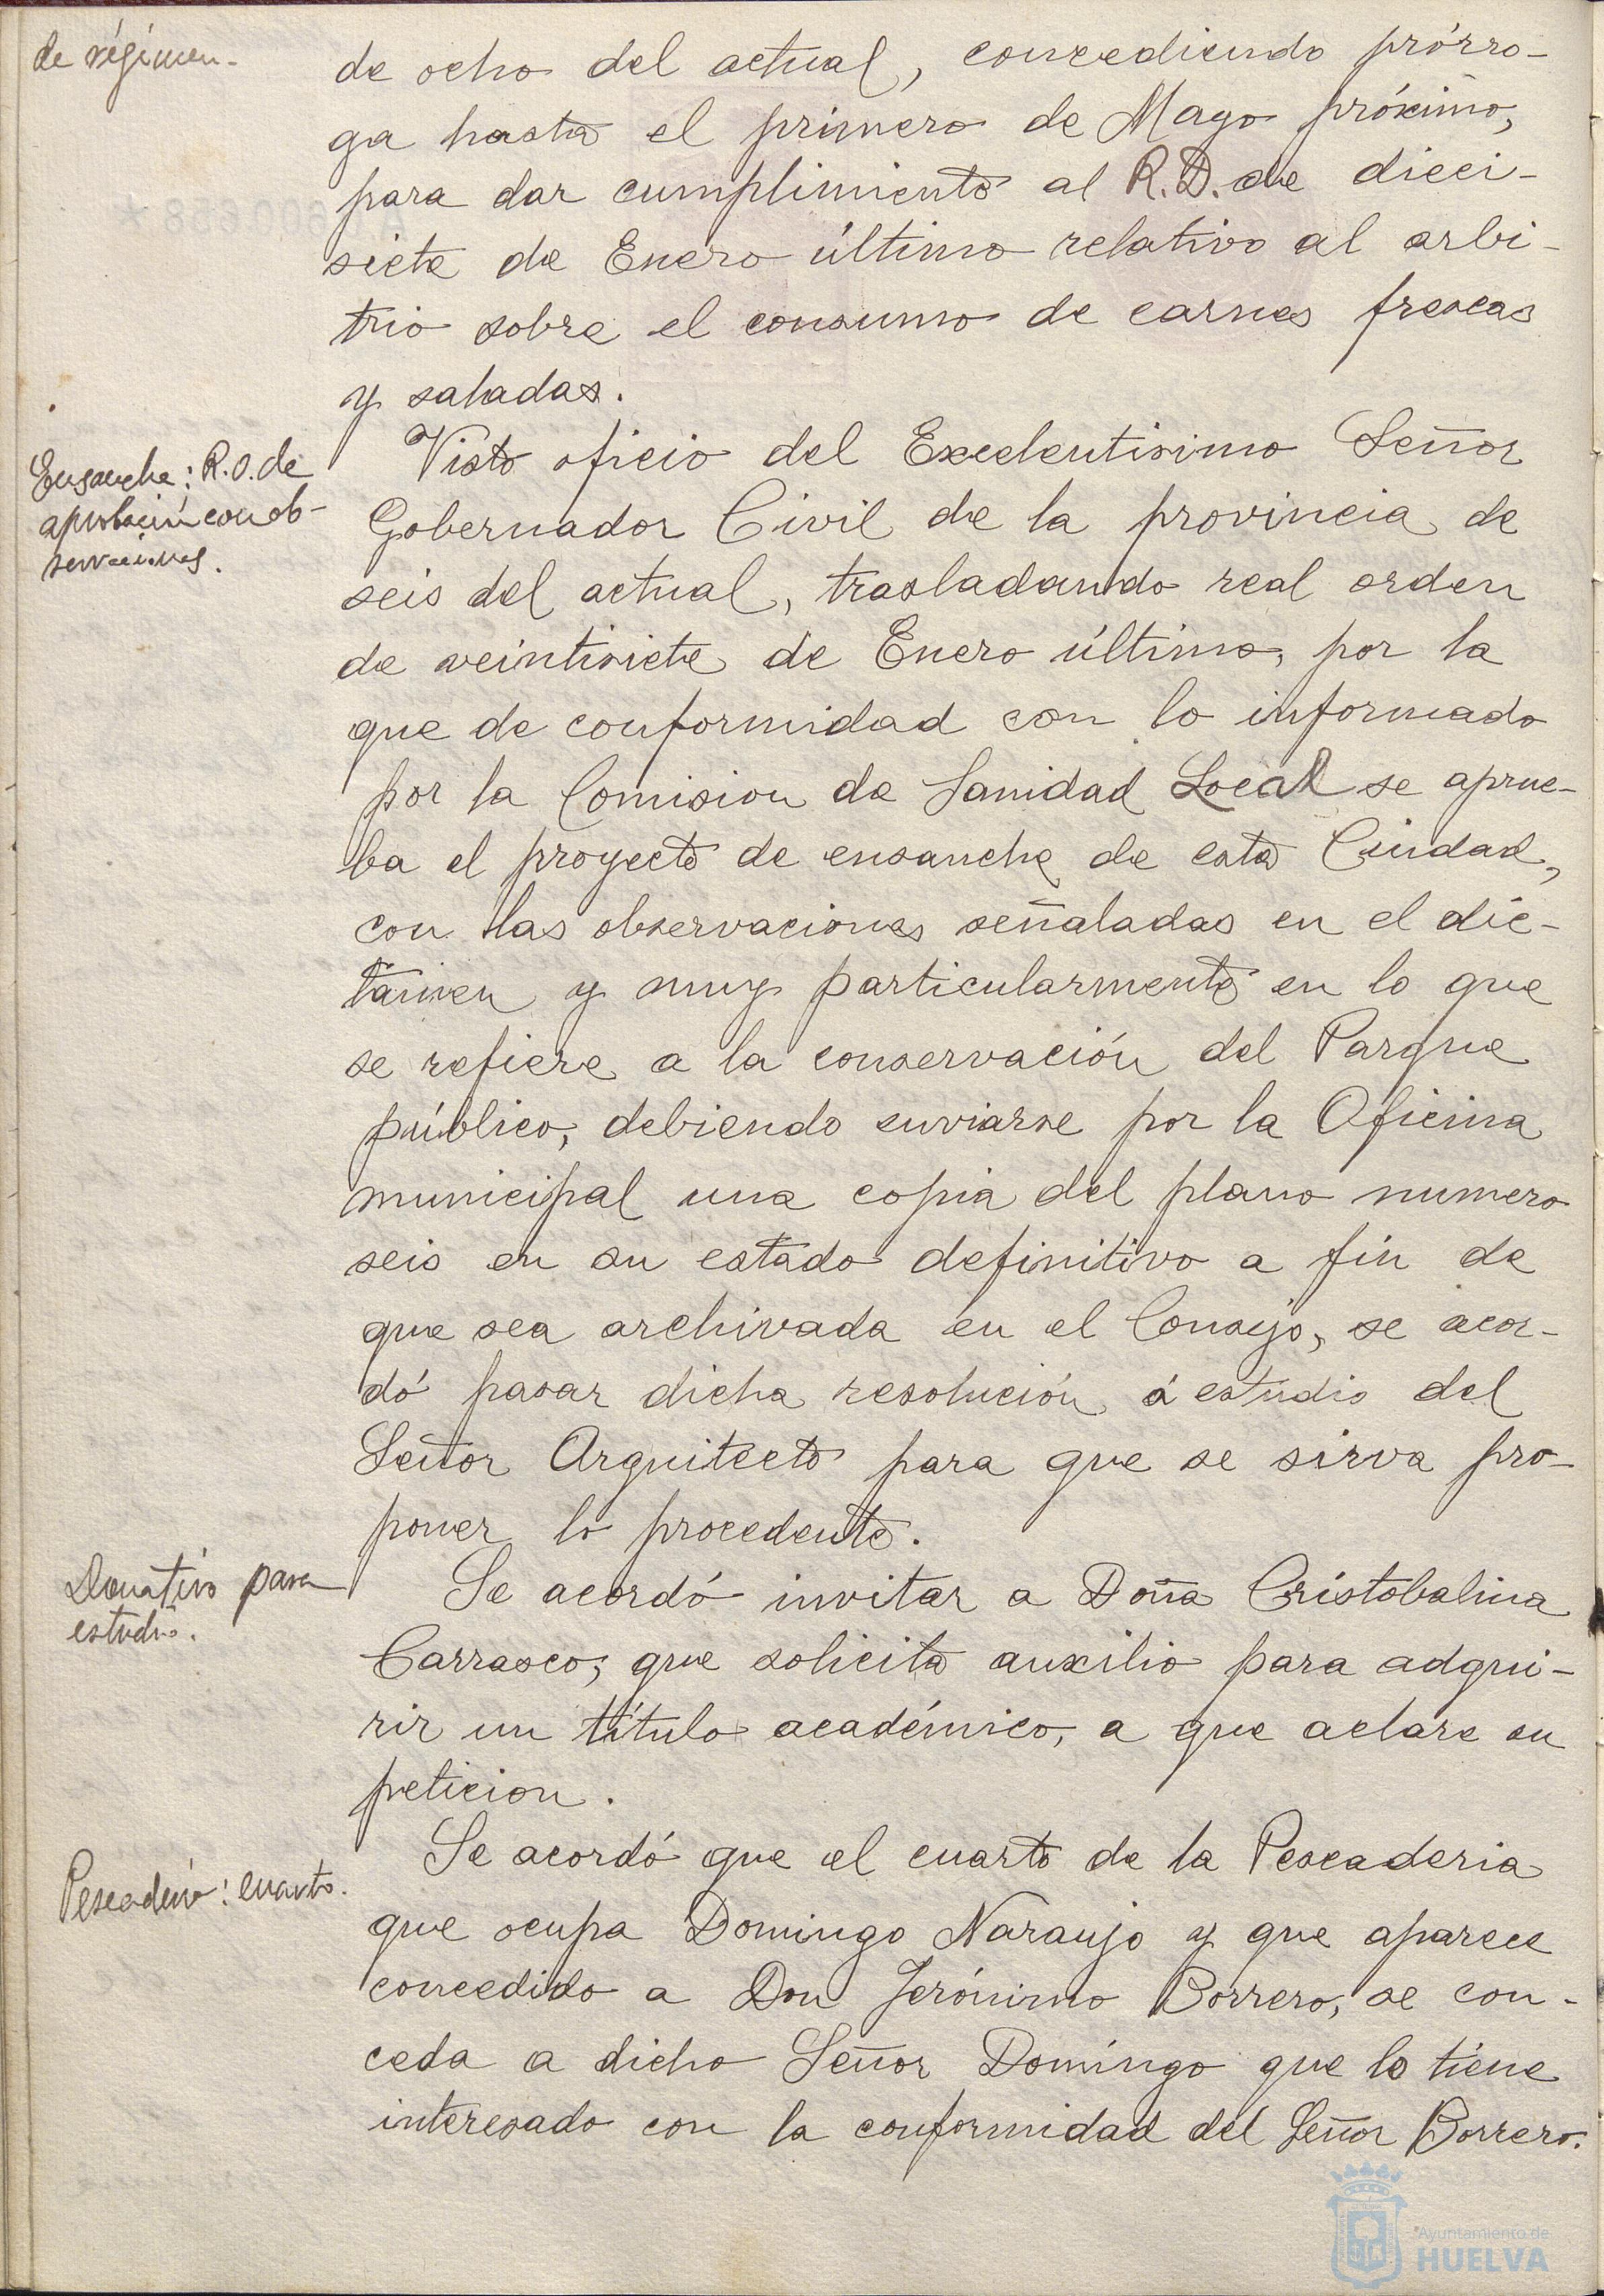 de régimen-
de ocho del actual, concediendo prórro-
ga hasta el primero de Mayo próximo,
para dar cumplimiento al R.D. de dieci-
siete de Enero último relativo al arbi-
trio sobre el consumo de carnes frescas
y saladas.
Ensanche: R.O. de
aprobación con ob-
servaciones.
Visto oficio del Excelentisimo Señor
Gobernador Civil de la provincia de
seis del actual, trasladando real orden
de veintisiete de Enero último, por la
que de conformidad con lo informado
por la Comision de Sanidad Local se aprue-
ba el proyecto de ensanche de esta Ciudad,
con las observaciones señaladas en el dic-
támen y muy particularmente en lo que
se refiere a la conservación del Parque
público, debiendo enviarse por la Oficina
municipal una copia del plano numero
seis en su estado definitivo a fin de
que sea archivada en el Consejo, se acor-
dó pasar dicha resolución á estudio del
Señor Arquitecto para que se sirva pro-
poner lo procedente.
Donativo para
estudio.
Se acordó invitar a Doña Cristobalina
Carrasco, que solicita auxilio para adqui-
rir un título académico, a que aclare su
peticion.
Pescadería: cuarto.
Se acordó que el cuarto de la Pescaderia
que ocupa Domingo Naranjo y que aparece
concedido a Don Jerónimo Borrero, se con-
ceda a dicho Señor Domíngo que lo tiene
interesado con la conformidad del Señor Borrero.
Ayuntamiento de
HUELVA